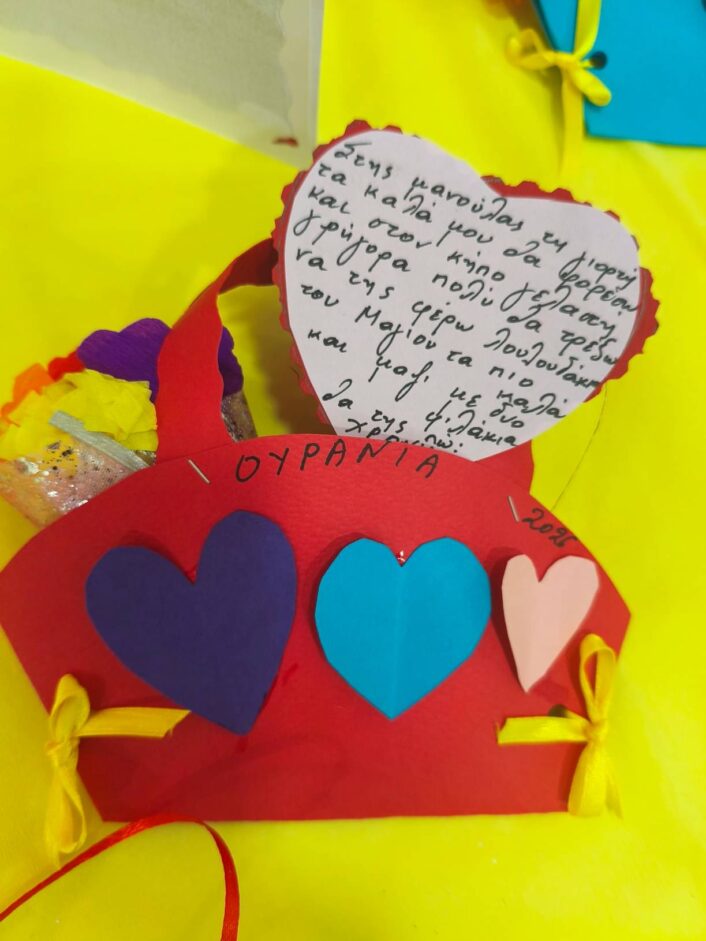 Στης μανούλας τη γιορτή
τα καλά μου θα φορέσω
και στον κήπο γελαστή
γρήγορα πολύ θα τρέξω
να της φέρω λουλουδάκια
του Μαγιού τα πιο καλά
και μαζί με δυο
φιλάκια
θα της
ΟΥΡΑΝΙΑ
2026